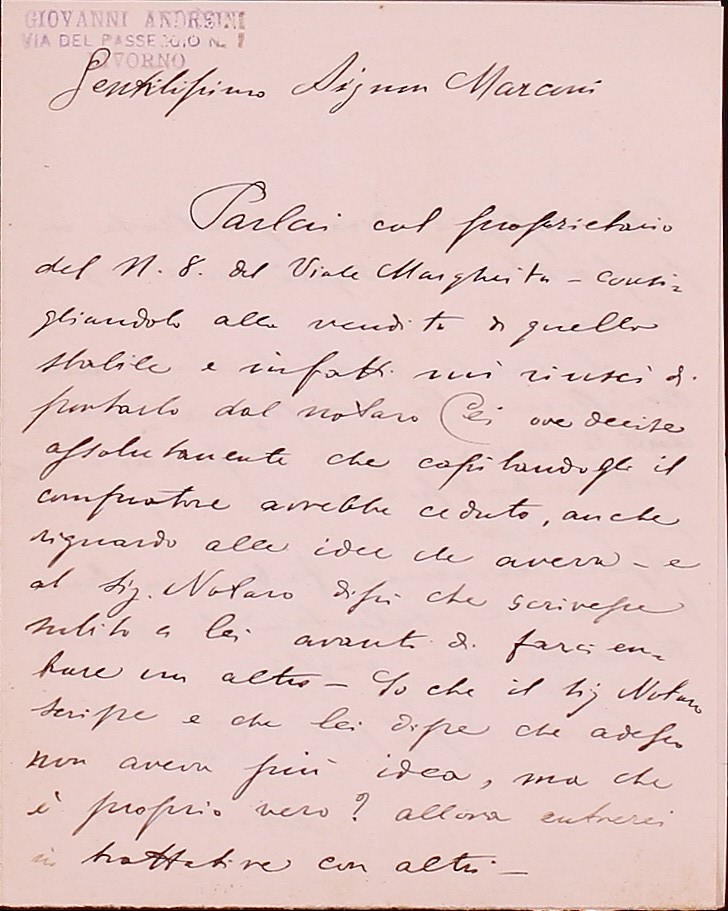 GIOVANNI ANDREINI
VIA DEL PASSEGGIO N. 1
LIVORNO
Gentilissimo Signor Marconi
Parlai col proprietario
del N. 8. del Viale Margherita – consi-
gliandolo alla vendita di quello
stabile e infatti mi riuscì di
portarlo dal notaro Cei ove decise
assolutamente che capitandogli il
compratore avrebbe ceduto, anche
riguardo alle idee che aveva – e
al Sig. Notaro dissi che scrivesse
subito a lei avanti di farci en-
trare un altro – So che il Sig Notaro
scrisse e che lei disse che adesso
non aveva più idea, ma che
è proprio vero? allora entrerei
in trattative con altri –